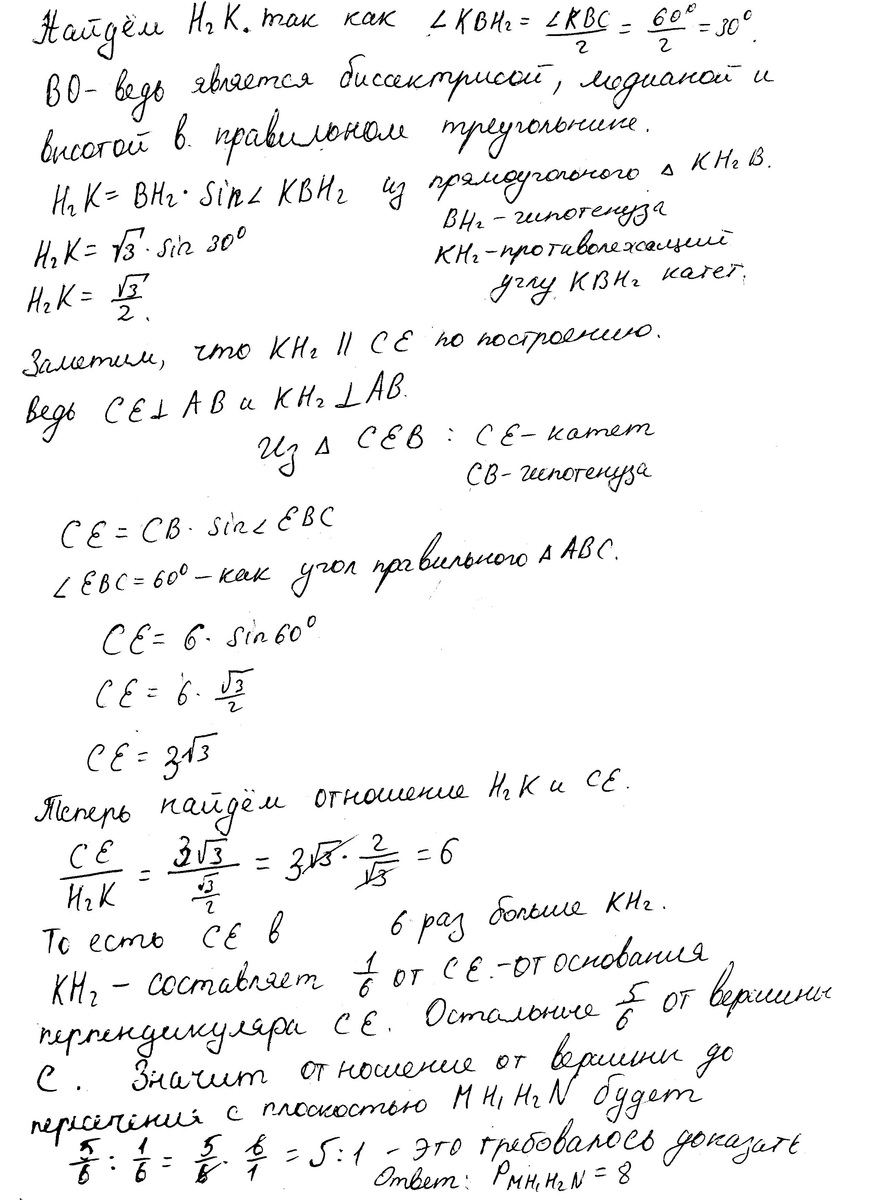 Найдём H₂K. так как ∠KBH₂ = ∠KBC/2 = 60°/2 = 30°.
BO - ведь является биссектрисой, медианой и
высотой в правильном треугольнике.
H₂K = BH₂ · sin∠ KBH₂ из прямоугольного △ KH₂B.
BH₂ - гипотенуза
H₂K = √3 · sin 30°
KH₂ - противолежащий
углу KBH₂ катет.
H₂K = √3/2.
Заметим, что KH₂ || CE по построению.
Ведь CE⊥AB и KH₂⊥AB.
Из △ CEB : CE - катет
CB - гипотенуза
CE = CB · sin∠ EBC
∠EBC = 60° - как угол правильного △ABC.
CE = 6 · sin60°
CE = 6 · √3/2
CE = 3√3
Теперь найдём отношение H₂K и CE.
CE/H₂K = 3√3/(√3/2) = 3√3 · 2/√3 = 6
То есть CE в 6 раз больше KH₂.
KH₂ - составляет 1/6 от CE - от основания
перпендикуляра CE. Остальные 5/6 от вершины
C. Значит отношение от вершины до
пересечения с плоскостью MH₁H₂N будет
5/6 : 1/6 = 5/6 · 6/1 = 5:1 - это требовалось доказать
Ответ: P_MH₁H₂N = 8